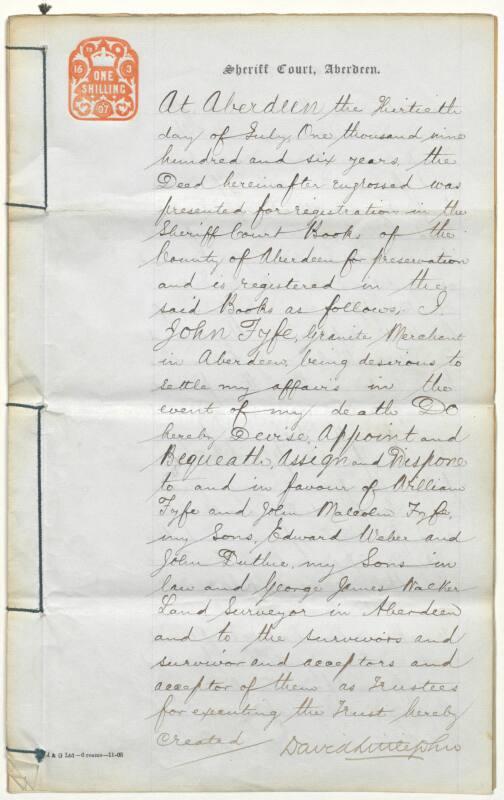 16 3
ONE
SHILLING
97
Sheriff Court, Aberdeen.
At Aberdeen the Thirtieth
day of July, One thousand nine
hundred and six years, the
Deed hereinafter engrossed was
presented for registration in the
Sheriff Court Books of the
County of Aberdeen for preservation
and is registered in the
said Books as follows; I,
John Fyfe, Granite Merchant
in Aberdeen, being desirous to
settle my affairs in the
event of my death Do
hereby Devise, Appoint and
Bequeath, Assign and Dispone
to and in favour of William
Fyfe and John Malcolm Fyfe,
my Sons, Edward Weber and
John Duthie, my Sons in
law and George James Walker
Land Surveyor in Aberdeen
and to the survivors and
survivor and acceptors and
acceptor of them as Trustees
for executing the Trust hereby
Created
David Littlejohn
& G Ltd—6 reams—11-05